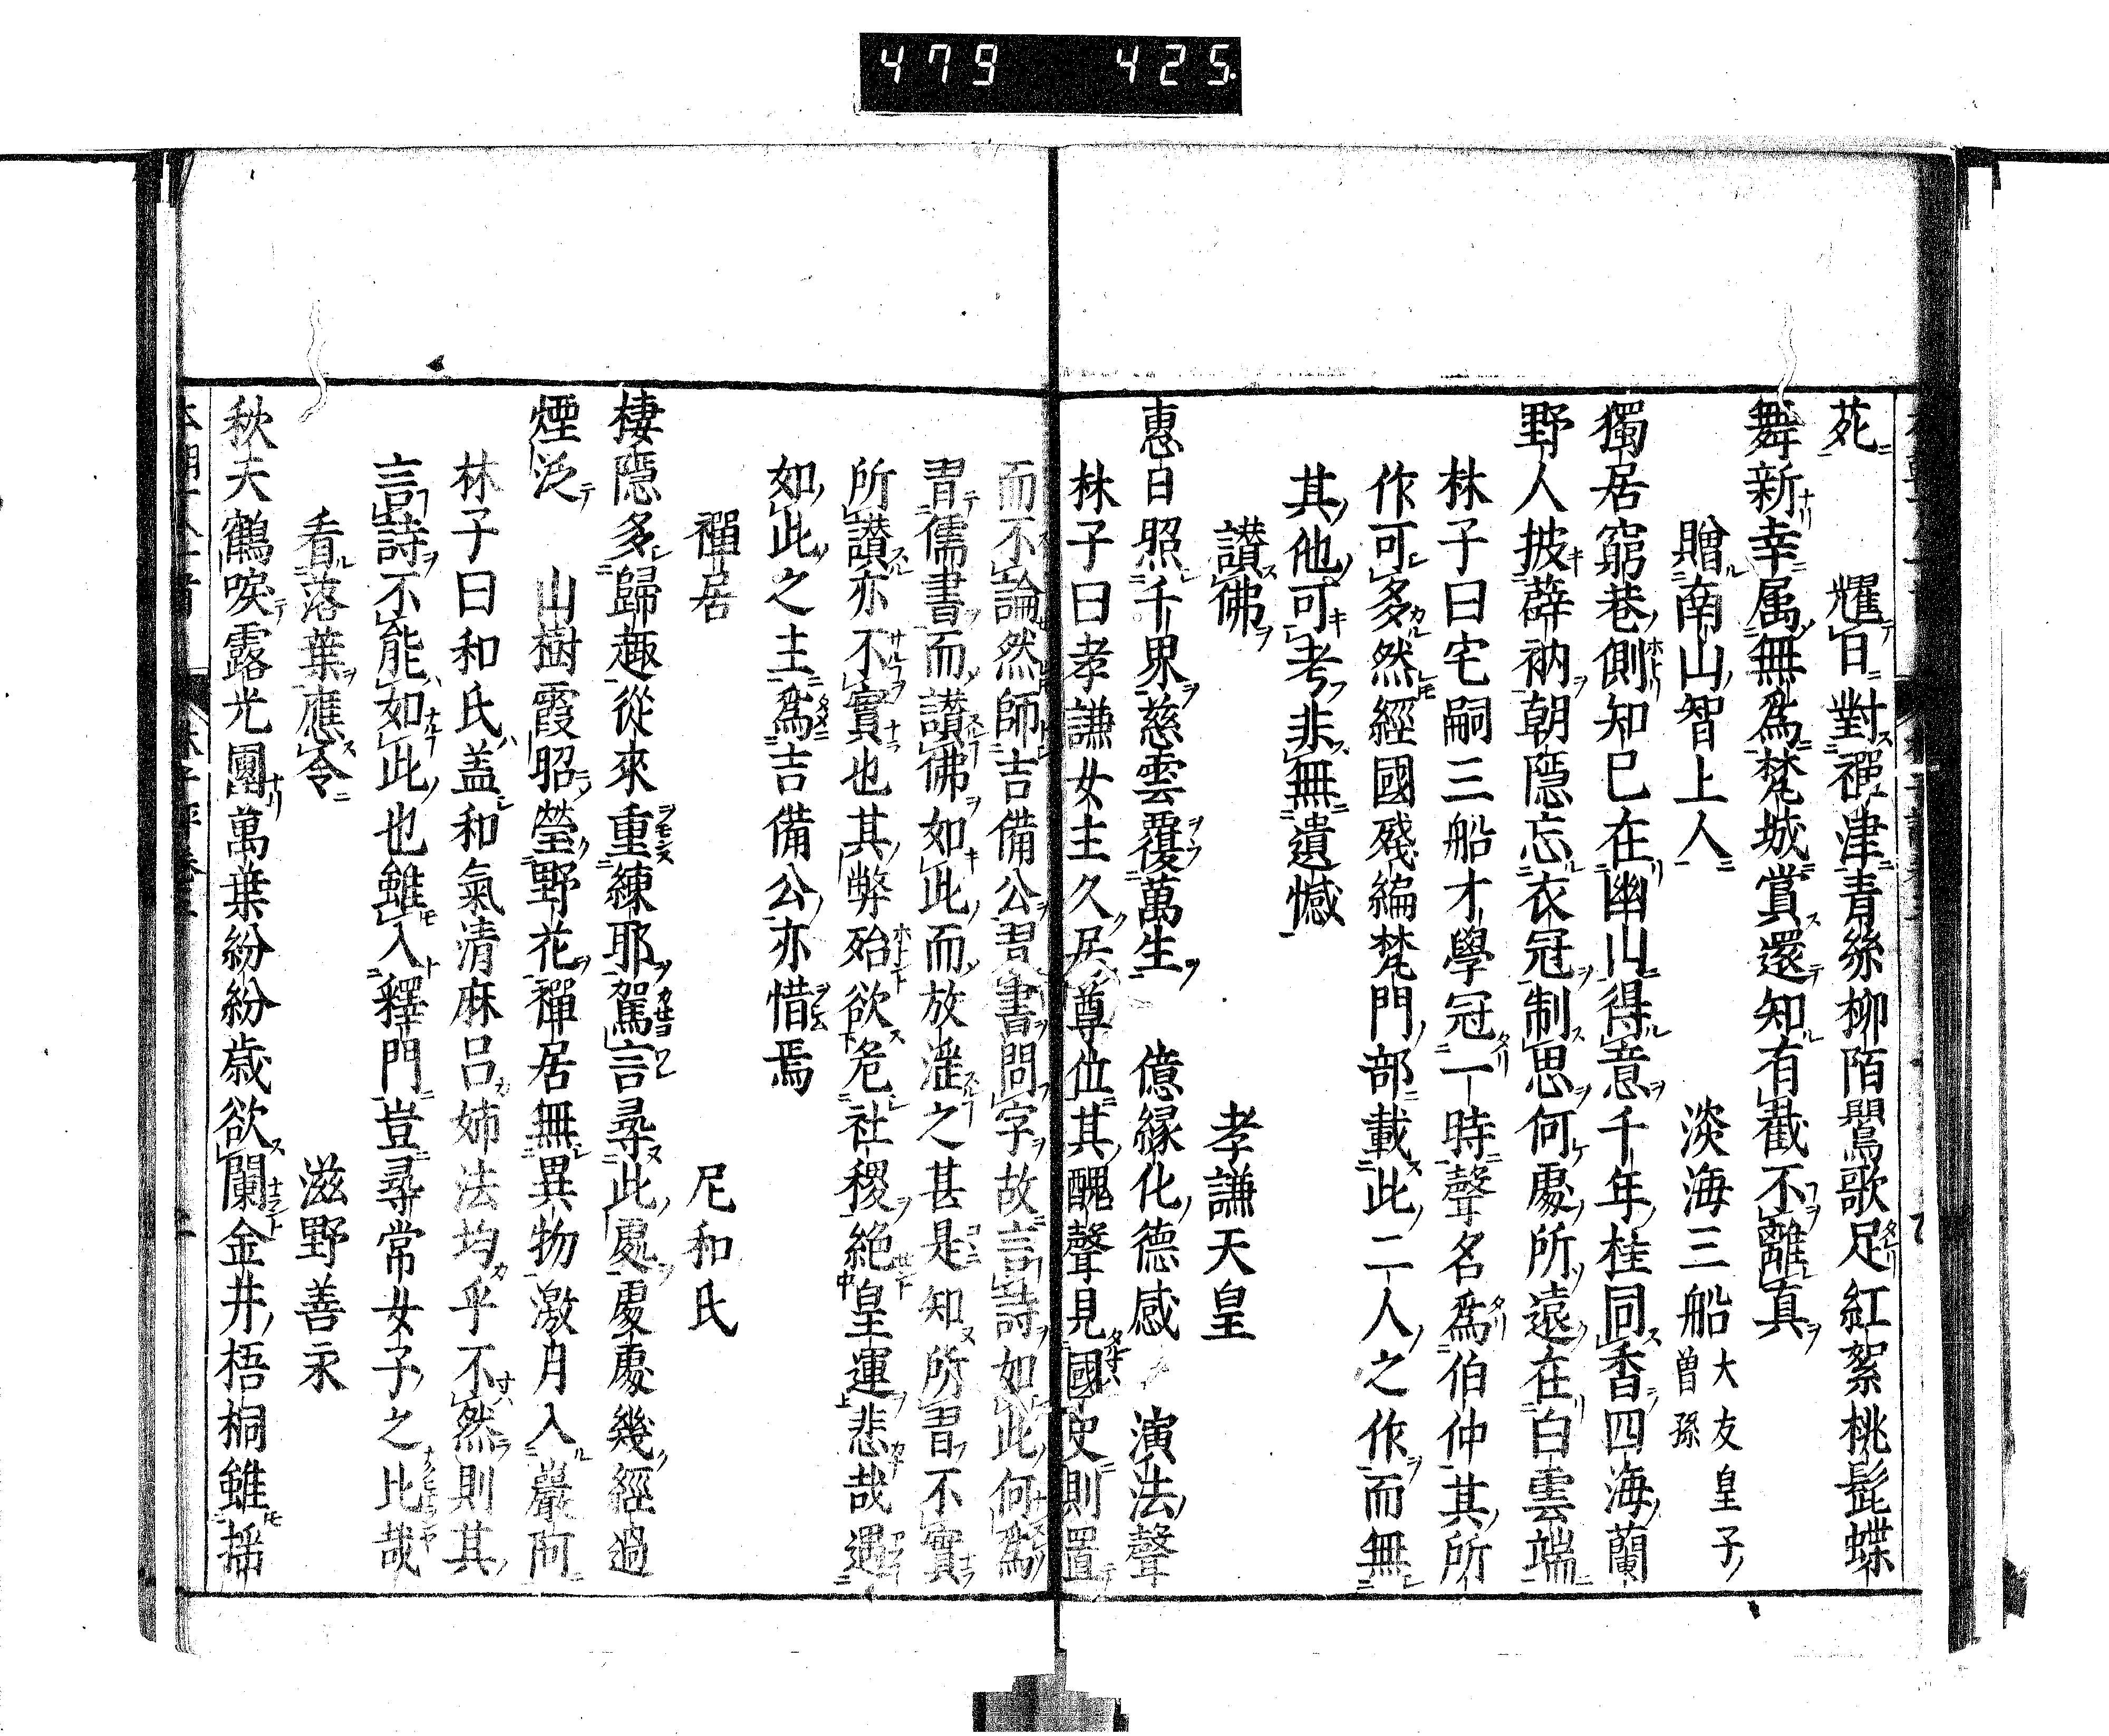 479 425
苑 耀日對禪津青絲柳陌鸎歌足紅絮桃髭蝶
舞新幸属無爲梵城賞還知有截不離真
贈南山智上人 淡海三船大友皇子曽孫
獨居窮巷側知已在幽山得意千年桂同香四海蘭
野人披薜衲朝隱忘衣冠制思何處所遠在白雲端
林子曰宅嗣三船才學冠一時聲名爲伯仲其所
作可多然經國殘編梵門部載此二人之作而無
其他可考非無遺憾
讃佛 孝謙天皇
惠日照千界慈雲覆萬生 億縁化德感 演法聲
林子曰孝謙女主久居尊位其醜聲見國史則置
而不論然師吉備公習書問字故言詩如此何爲
習儒書而讃佛如此而放淫之甚是知所習不實
所讃亦不實也其弊殆欲危社稷絶皇運悲哉遇
如此之主爲吉備公亦惜焉
禪居 尼和氏
棲隱多歸趣從來重練耶駕言尋此處處處幾經過
煙泛 山樹霞昭瑩野花禪居無異物激月入巖阿
林子曰和氏盖和氣清麻呂姉法均乎不然則其
言詩不能如此也雖入釋門豈尋常女子之比哉
看落葉應令 滋野善永
秋天鶴唳露光團萬葉紛紛歳欲闌金井梧桐雖揺